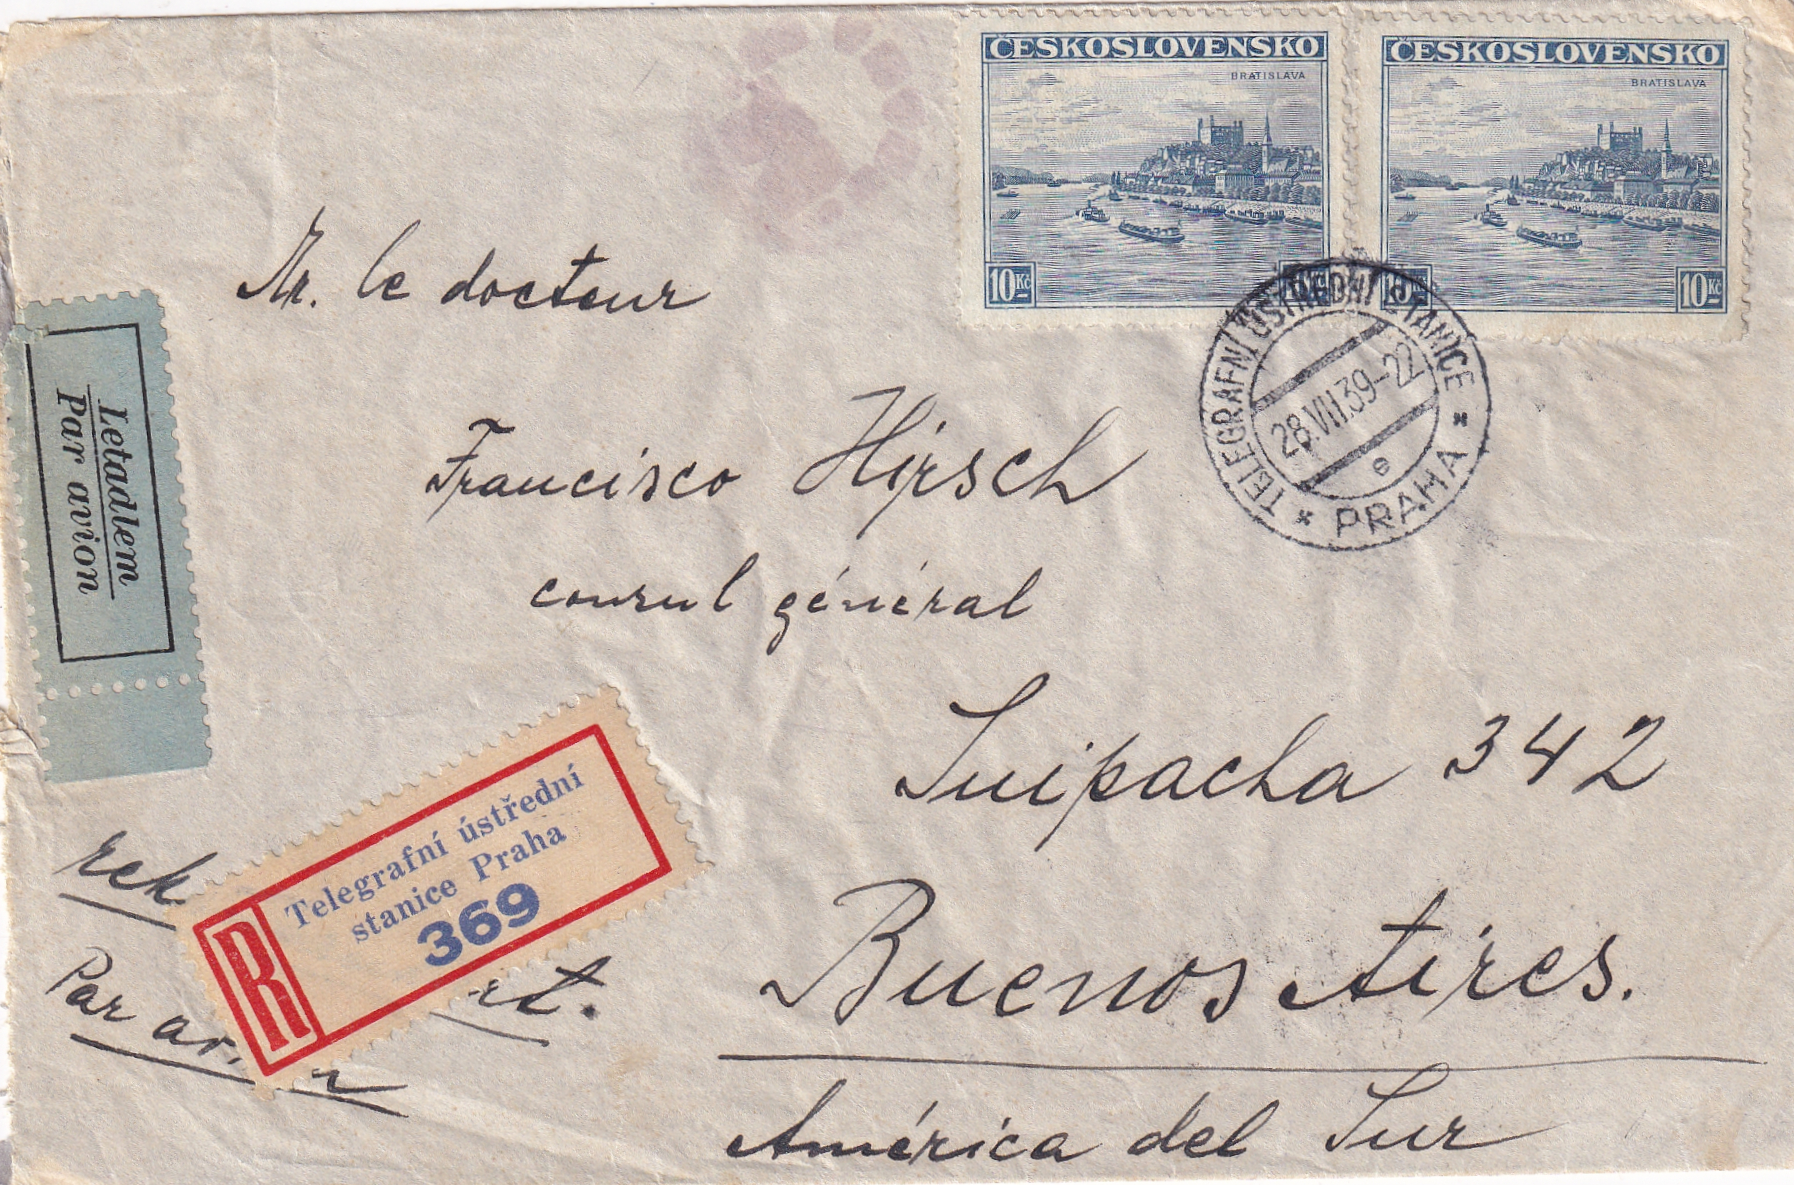 ČESKOSLOVENSKO
BRATISLAVA
10 Kč
ČESKOSLOVENSKO
BRATISLAVA
10 Kč
10 Kč
TELEGRAFNÍ ÚSTŘEDNÍ STANICE
28.VII.39-22
e
* PRAHA *
Mr. le docteur
Francisco Hirsch
consul général
Suipacha 342
Buenos Aires.
América del Sur
Letadlem
Par avion
rek
Telegrafní ústřední
stanice Praha
R
369
Par